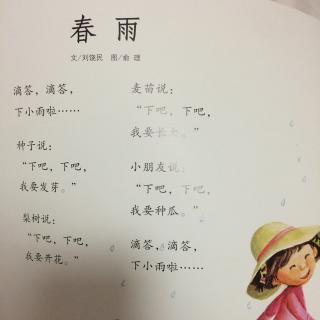 春雨
文/刘饶民 图/俞理
滴答，滴答，
下小雨啦……
种子说：
“下吧，下吧，
我要发芽。”
梨树说：
“下吧，下吧，
我要开花。”
麦苗说：
“下吧，下吧，
我要长大。”
小朋友说：
“下吧，下吧，
我要种瓜。”
滴答，滴答，
下小雨啦……